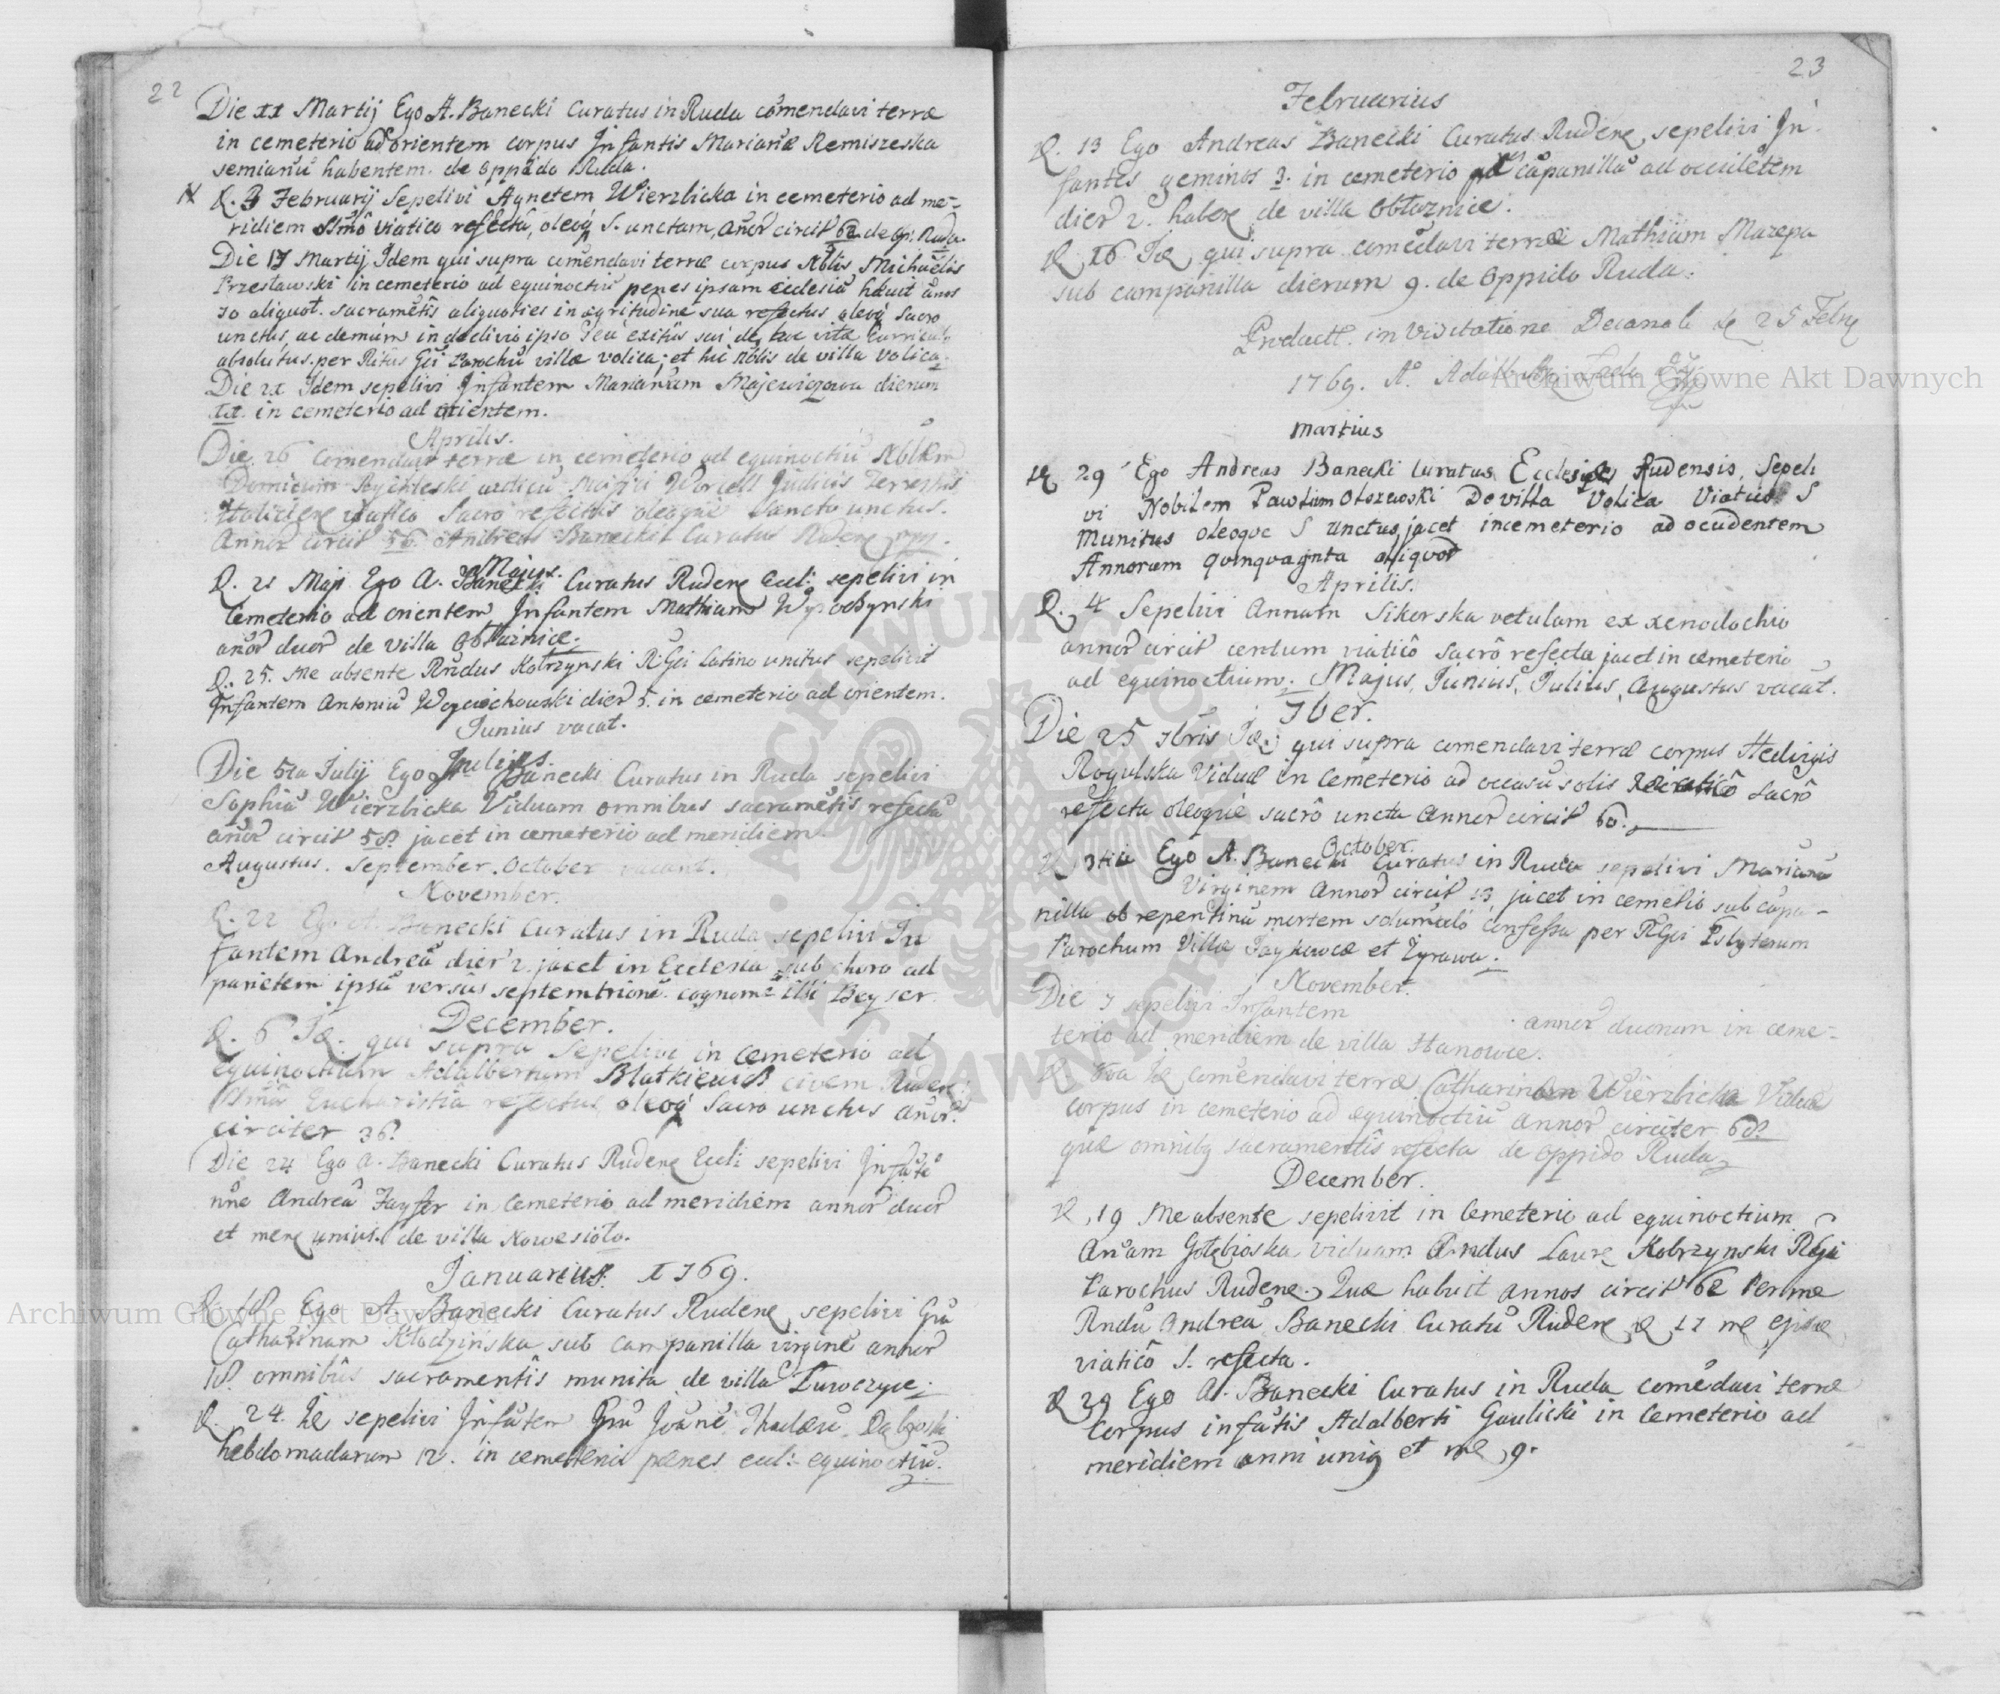 22
Die 11 Martij Ego A. Banecki Curatus in Ruda comendavi terræ
in cemeterio ad orientem corpus Infantis Marianæ Remiszeska
semianū habentem de oppido Ruda.
D. 3 Februarij Sepelivi Agnetem Wierzbicka in cemeterio ad me-
ridiem viatico refectā, S. unctam, anor circit 62 de Ruda.
Die 17 Martij Idem qui supra comendavi terræ corpus Nblis Michaelis
Przestawski in cemeterio ad equinoctiū penes ipsam ecclesiā hauit anos
30 aliquot. sacramētis aliquoties in ægritudine sua refectus sacro
unctus, ac demum in declivio ipso exitus sui de hac vita
absolutus per Ritus Parochū villæ volica; et hic Nblis de villa Volica.
Die 21 Idem sepelivi Infantem Mariannam Majewiczowa dierum
in cemeterio ad orientem.
Aprilis.
Die 26 Comendavi terræ in cemeterio ad equinoctiū Nblem
Worcell Judicis Terrestris
Halicien viatico Sacro refectus oleoque sancto unctus.
Annor circit 56. Andreas Banecki Curatus Rudene
Majus.
D. 21 Maji Ego A. Banecki Curatus Rudene Eccl: sepelivi in
Cemeterio ad orientem Infantem Mathiam
anor duor de villa Obłaznice.
D. 25. Me absente Rndus Kobrzynski RGci Latino unitus sepelivit
Infantem Antoniū Woyciechowski dier 5. in cemeterio ad orientem.
Junius vacat.
Julius.
Die 5ta Julij Ego A. Banecki Curatus in Ruda sepelivi
Sophiā Wierzbicka Viduam omnibus sacramētis refectā
anor circit 58. jacet in cemeterio ad meridiem.
Augustus. September. October vacant.
November.
D. 22 Ego A. Banecki Curatus in Ruda sepelivi In
fantem Andreā dier 2. jacet in Ecclesia sub choro ad
parietem ipsū versus septemtrionē. cognom: illi Beyser.
December.
D. 6 Id. qui supra Sepelivi in cemeterio ad
equinoctium Adalbertum Blatkiewicz civem Ruden:
Eucharistia refectus oleoq Sacro unctus anor
circiter 36.
Die 24 Ego A. Banecki Curatus Rudene Eccli sepelivi Infāte
nne Andreā Fayfer in Cemeterio ad meridiem annor duor
et mens unius de villa Nowesioło.
Januarius. 1769.
D. 18. Ego A. Banecki Curatus Rudene, sepelivi
Catharinam Kłodzinska sub campanilla virginē annor
18. omnibus sacramentis munita de villa Zuwczyce.
D. 24. Id sepelivi Infātem Joānē Thadæū
hebdomadarum 12. in cemeterio penes eccl: equinoctiū.
23
Februarius
D. 13 Ego Andreas Banecki Curatus Rudene, sepelivi In-
fantes geminos 3. in cemeterio capanillā ad occidetem
dier 2. habene de villa Obłaznice.
D. 16 Id, qui supra comēdavi terræ Mathiam Mazepa
sub campanilla dierum 9. de Oppido Ruda.
Product. in Visitatione Decanali de 25 Febr
1769. A°
Martius
D. 29 Ego Andreas Banecki Curatus Ecclesiæ Rudensis, Sepeli
vi Nobilem Pawlum Olszewski De villa Volica Viatico S
Munitus oleoqve S unctus, jacet in cemeterio ad ocudentem
Annorum qvinqvagnta aliqvot
Aprilis.
D. 4 Sepelivi Annam Sikorska vetulam ex xenodochio
annor circit centum viaticō sacrō refecta jacet in cemeterio
ad equinoctium. Majus, Junius, Julius, Augustus vacāt.
7ber.
Die 25 7bris Id. qui supra comendavi terræ corpus Hedivigis
Rogulska Viduæ in Cemeterio ad occasū solis viaticō Sacrō
refecta oleoque sacrō uncta annor circit 60.
October.
D. 3tia Ego A. Banecki Curatus in Ruda sepelivi Mariannā
Virginem annor circit 13, jacet in cemetio sub cāpa-
nilla ob repentinā mortem solūmodō confessa per RGci Psbyterum
Parochum Villæ Jaykowce et Zyrawa.
November.
Die 7 sepelivi Infantem annor duorum in ceme-
terio ad meridiem de villa Hanowce.
D. Id comendavi terræ Catharinam Wierzbicka Viduæ
corpus in cemeterio ad equinoctiū annor circiter 68
quæ omnibq sacramentis refecta de oppido Ruda.
December.
D. 19 Me absente sepelivit in Cemeterio ad equinoctium
Anam Gołębioska viduam Rndus Laure Kobrzynski RGci
Parochus Rudene. Quæ habuit annos circit 62 Per me
Rndū Andreā Banecki Curatū Rudene, D. 17 me ejusde
viaticō S. refecta.
D. 29 Ego A. Banecki Curatus in Ruda comēdavi terræ
Corpus infātis Adalberti Gaulicki in Cemeterio ad
meridiem anni uniq et me 9.
Archiwum Główne Akt Dawnych
Archiwum Główne Akt Dawnych
ARCHIWUM GŁÓWNE AKT DAWNYCH